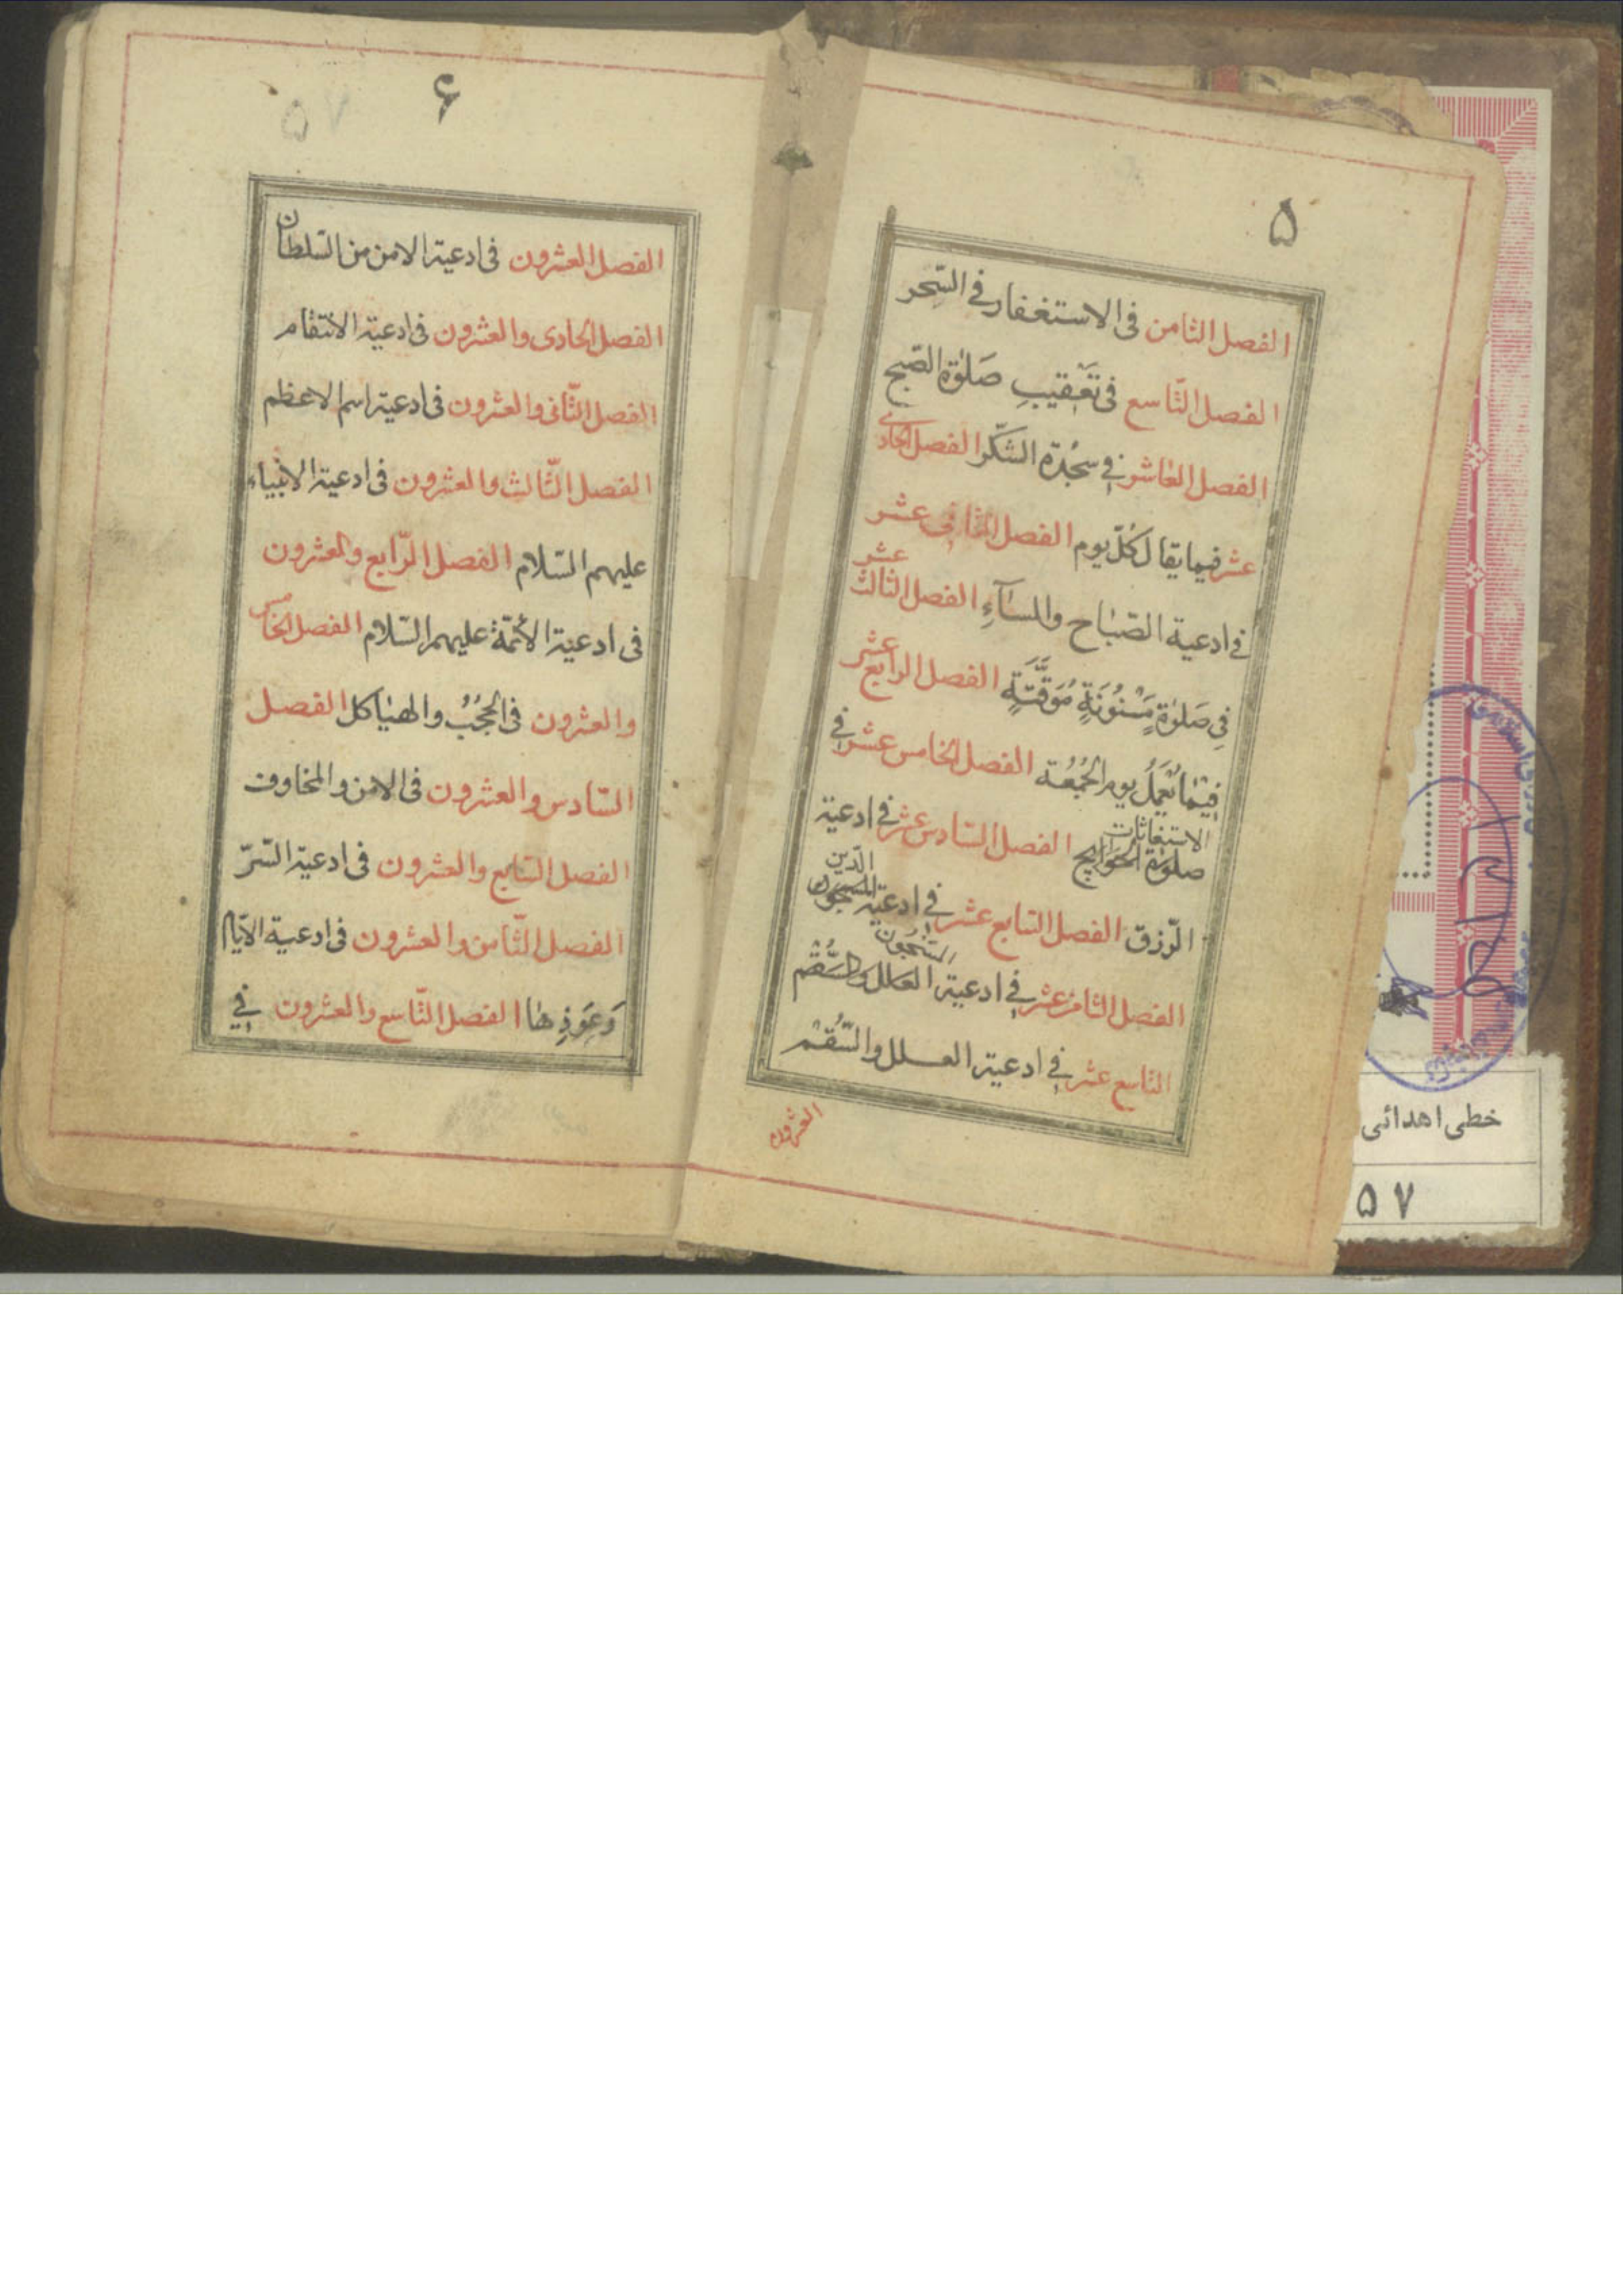 ۵
الفصل الثامن فى الاستغفار فى السّحر
الفصل التّاسع فى تَعقيبِ صَلوٰة الصّبح
الفصل العاشر فى سجْدة الشكّر الفصل الحادى
عشر فيما يقال كلّ يوم الفصل الثانى عشر
فى ادعية الصّباح والمسآءِ الفصل الثالث عشر
فى صَلوٰةٍ مَسْنُونَةٍ مُوَقَّتَةٍ الفصل الرابع عشر
فيما يُعْمَلُ يوم الجُمُعة الفصل الخامس عشر فى
صلوٰة الحَوَايج الاستغاثات الفصل السّادس عشر فى ادعية
الرّزق الفصل السّابع عشر فى ادعية المسجون الدّين
الفصل الثامن عشر فى ادعية العلل والسُّقْم المسجون
التاسع عشر فى ادعية العلل والسُّقْم
العشرون
۶
۵۷
الفصل العشرون فى ادعية الامن من السّلطان
الفصل الحادى والعشرون فى ادعية الانتقام
الفصل الثّانى والعشرون فى ادعية اسم الاعظم
الفصل الثّالث والعشرون فى ادعية الانبياء
عليهم السّلام الفصل الرّابع والعشرون
فى ادعية الأئمّة عليهم السّلام الفصل الخامس
والعشرون فى الحُجُبُ والهياكل الفصل
السّادس والعشرون فى الامن والمخاوف
الفصل السّابع والعشرون فى ادعية السّرّ
الفصل الثّامن والعشرون فى ادعية الايّام
وَعَوَذِها الفصل التّاسع والعشرون فى
خطى اهدائى
۵۷